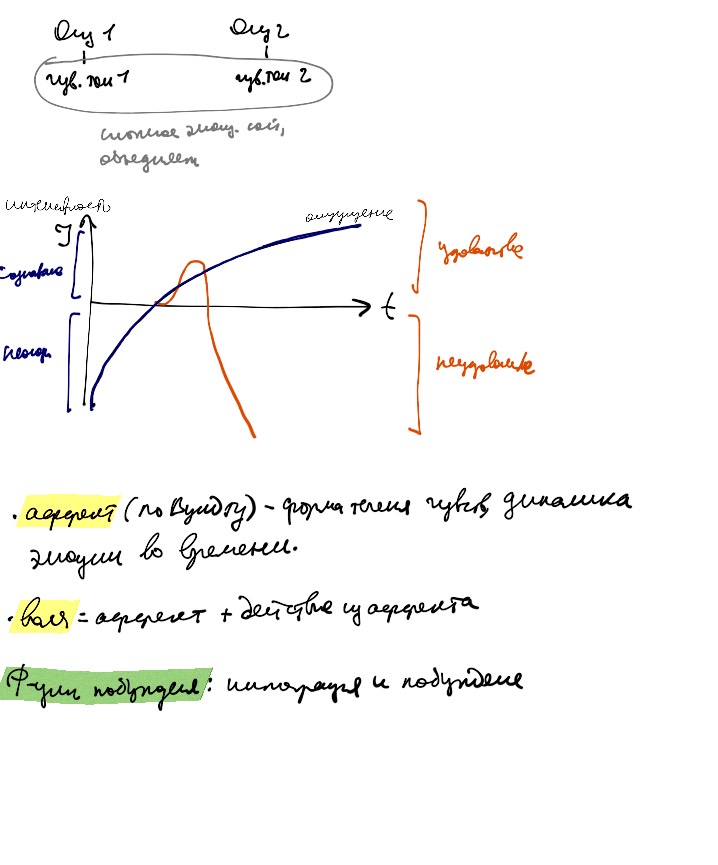 Ощ 1 Ощ 2
чув. тон 1 чув. тон 2
сложное эмоц. сост,
объединяет
интенсивность
ощущение
J
удовольствие
сознаваем
t
неосоз.
неудовольствие
• аффект (по Вундту) - форма течения чувств, динамика
эмоции во времени.
• воля = аффект + действие из аффекта
Ф-ции побуждения: интеграция и побуждение